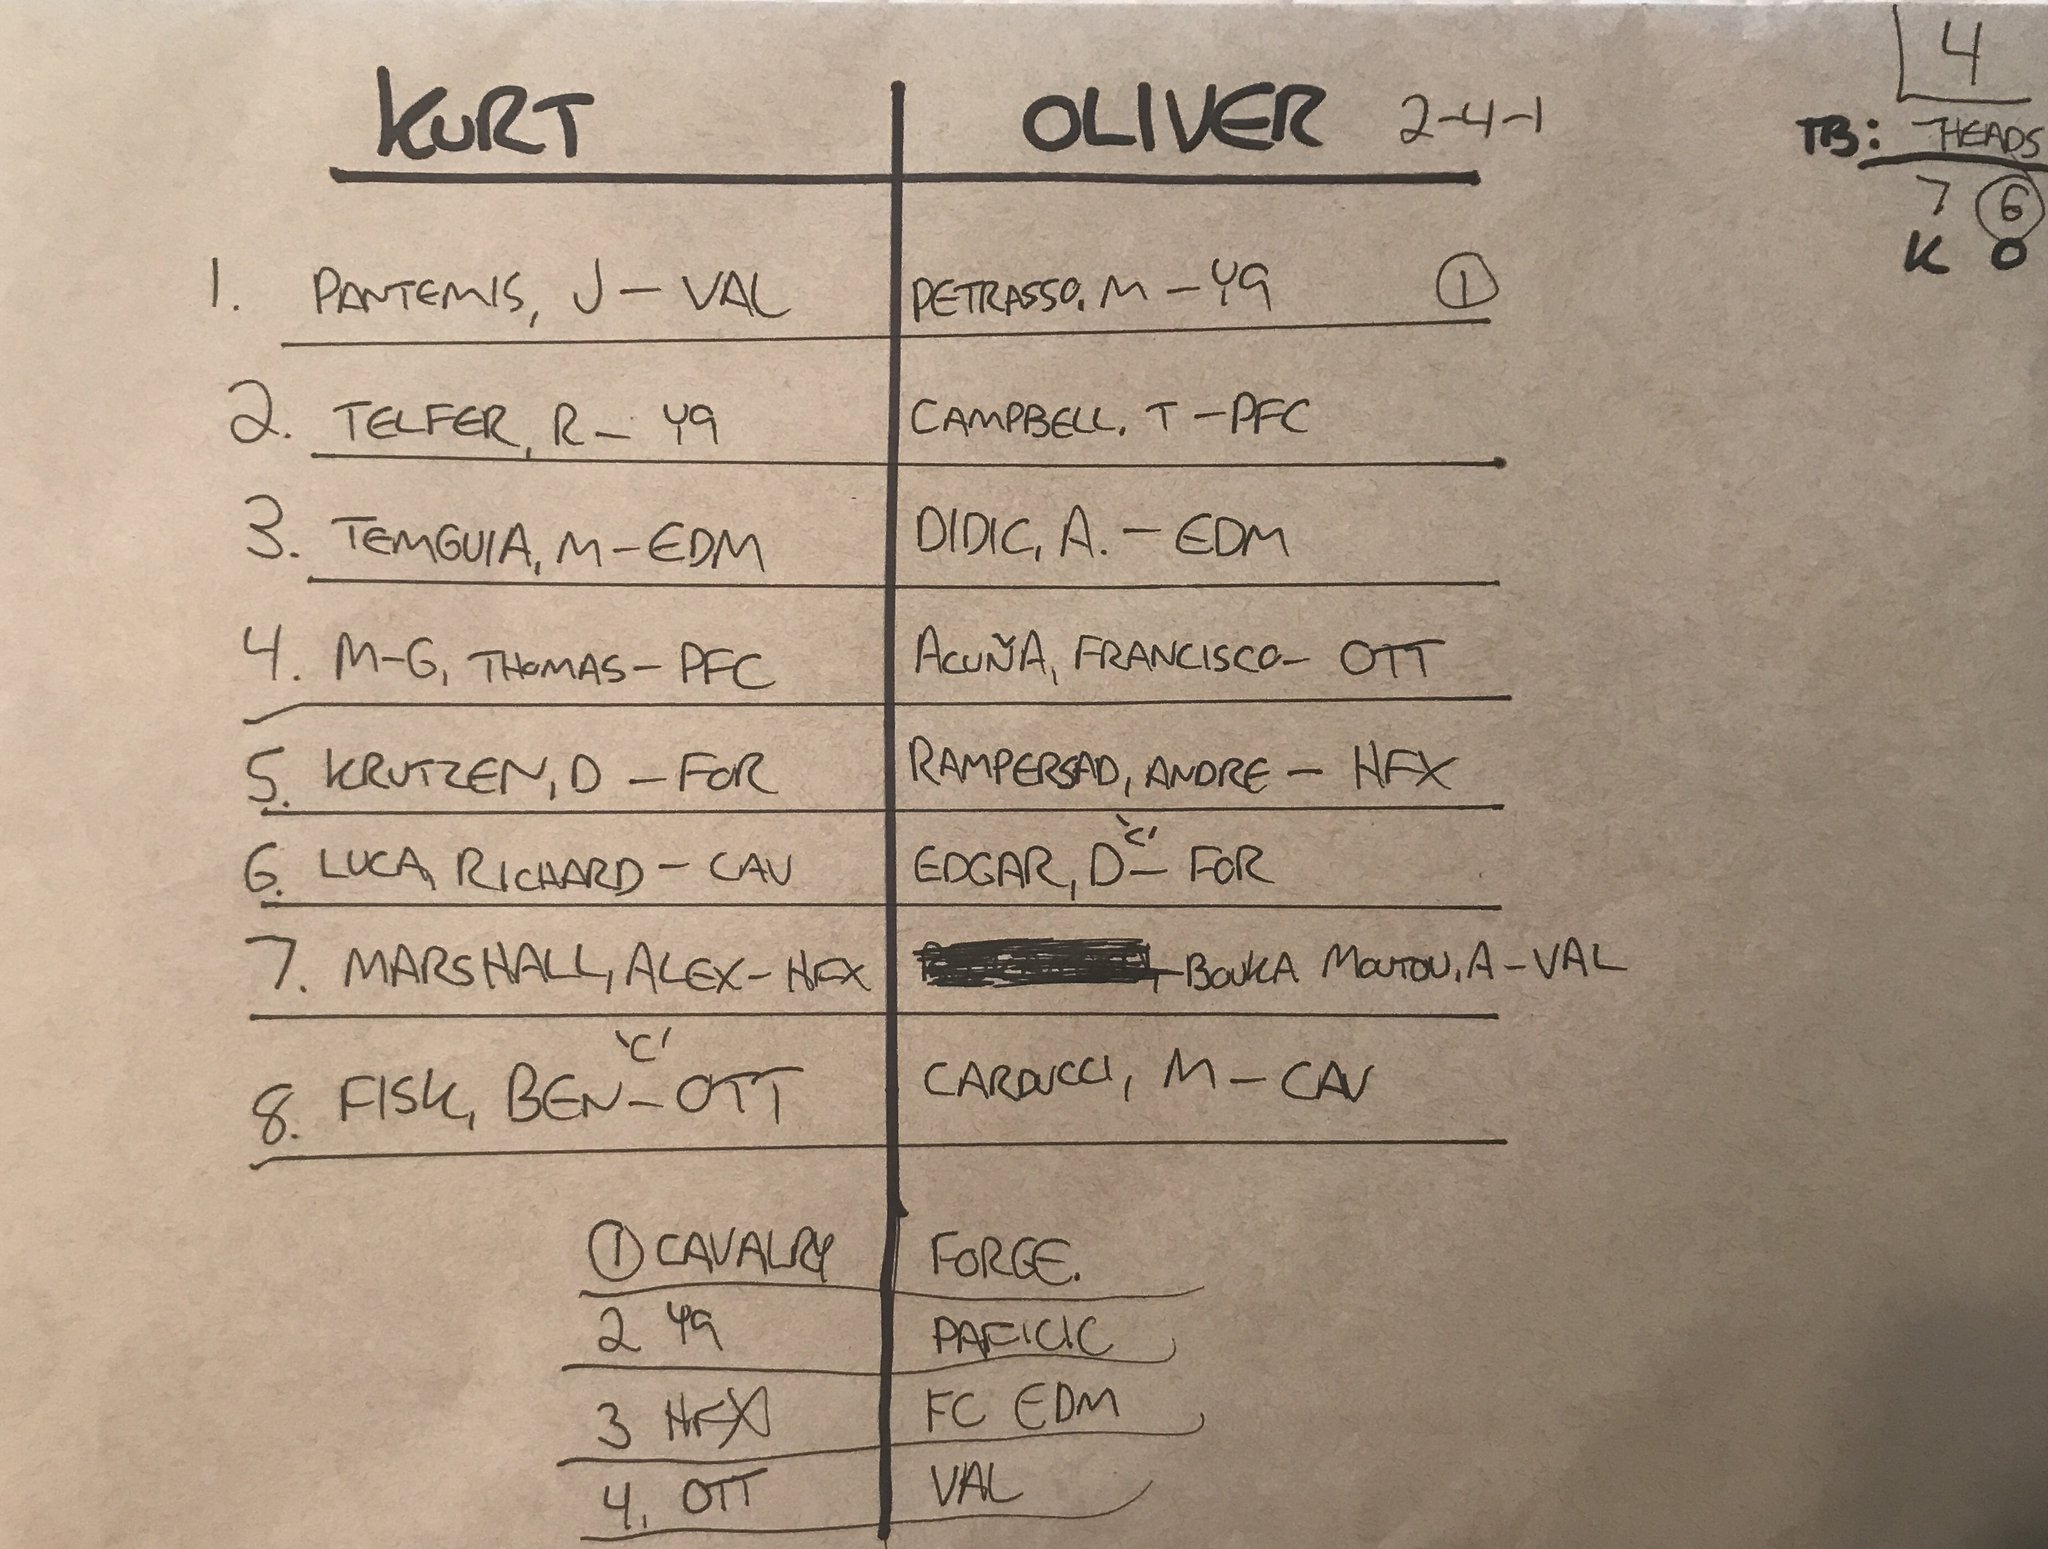 KURT OLIVER 2-4-1
4
TB: 7HEADS
7 6
K O
1. PANTEMIS, J - VAL PETRASSO, M - Y9 1
2. TELFER, R - Y9 CAMPBELL, T - PFC
3. TEMGUIA, M - EDM DIDIC, A. - EDM
4. M-G, THOMAS - PFC ACUÑA, FRANCISCO - OTT
5. KRUTZEN, D - FOR RAMPERSAD, ANDRE - HFX
6. LUCA, RICHARD - CAV EDGAR, D 'C' - FOR
7. MARSHALL, ALEX - HFX - BOUKA MOUTOU, A - VAL
8. FISK, BEN 'C' - OTT CARDUCCI, M - CAV
1 CAVALRY FORGE.
2 Y9 PAFICIC
3 HFX FC EDM
4. OTT VAL